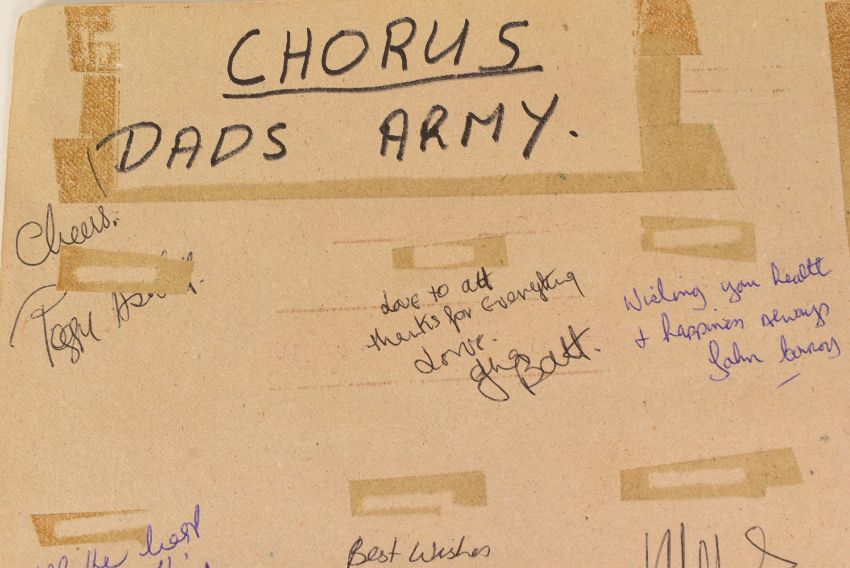 CHORUS
DADS ARMY.
Cheers.
Love to all
thanks for Everything
Love.
Batt.
Wishing you health
+ happiness always
John
the best
Best Wishes